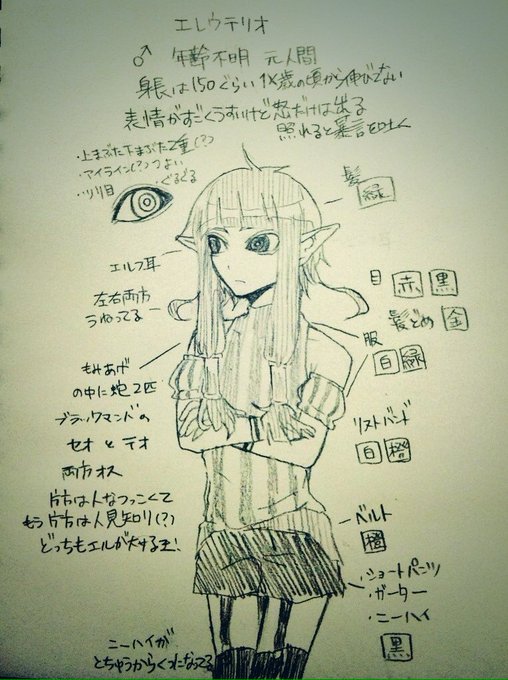 エレウテリオ
♂ 年齢不明 元人間
身長は150ぐらい 1X歳の頃から伸びてない
表情がすごくうすいけど怒だけは出る
照れると暴言を吐く
・上まぶた下まぶた二重(?)
・アイライン(?)つよい
・ツリ目 ・ぐるぐる
髪
緑
エルフ耳
左右両方
うねってる
目 赤 黒
髪どめ 金
服
白 緑
もみあげ
の中に蛇2匹
ブラックマンバの
セオ と テオ
両方オス
片方は人なつっこくて
もう片方は人見知り(?)
どっちもエルが大好き!
リストバンド
白 橙
ベルト
橙
・ショートパンツ
・ガーター
・ニーハイ
黒
ニーハイが
とちゅうからくつになってる